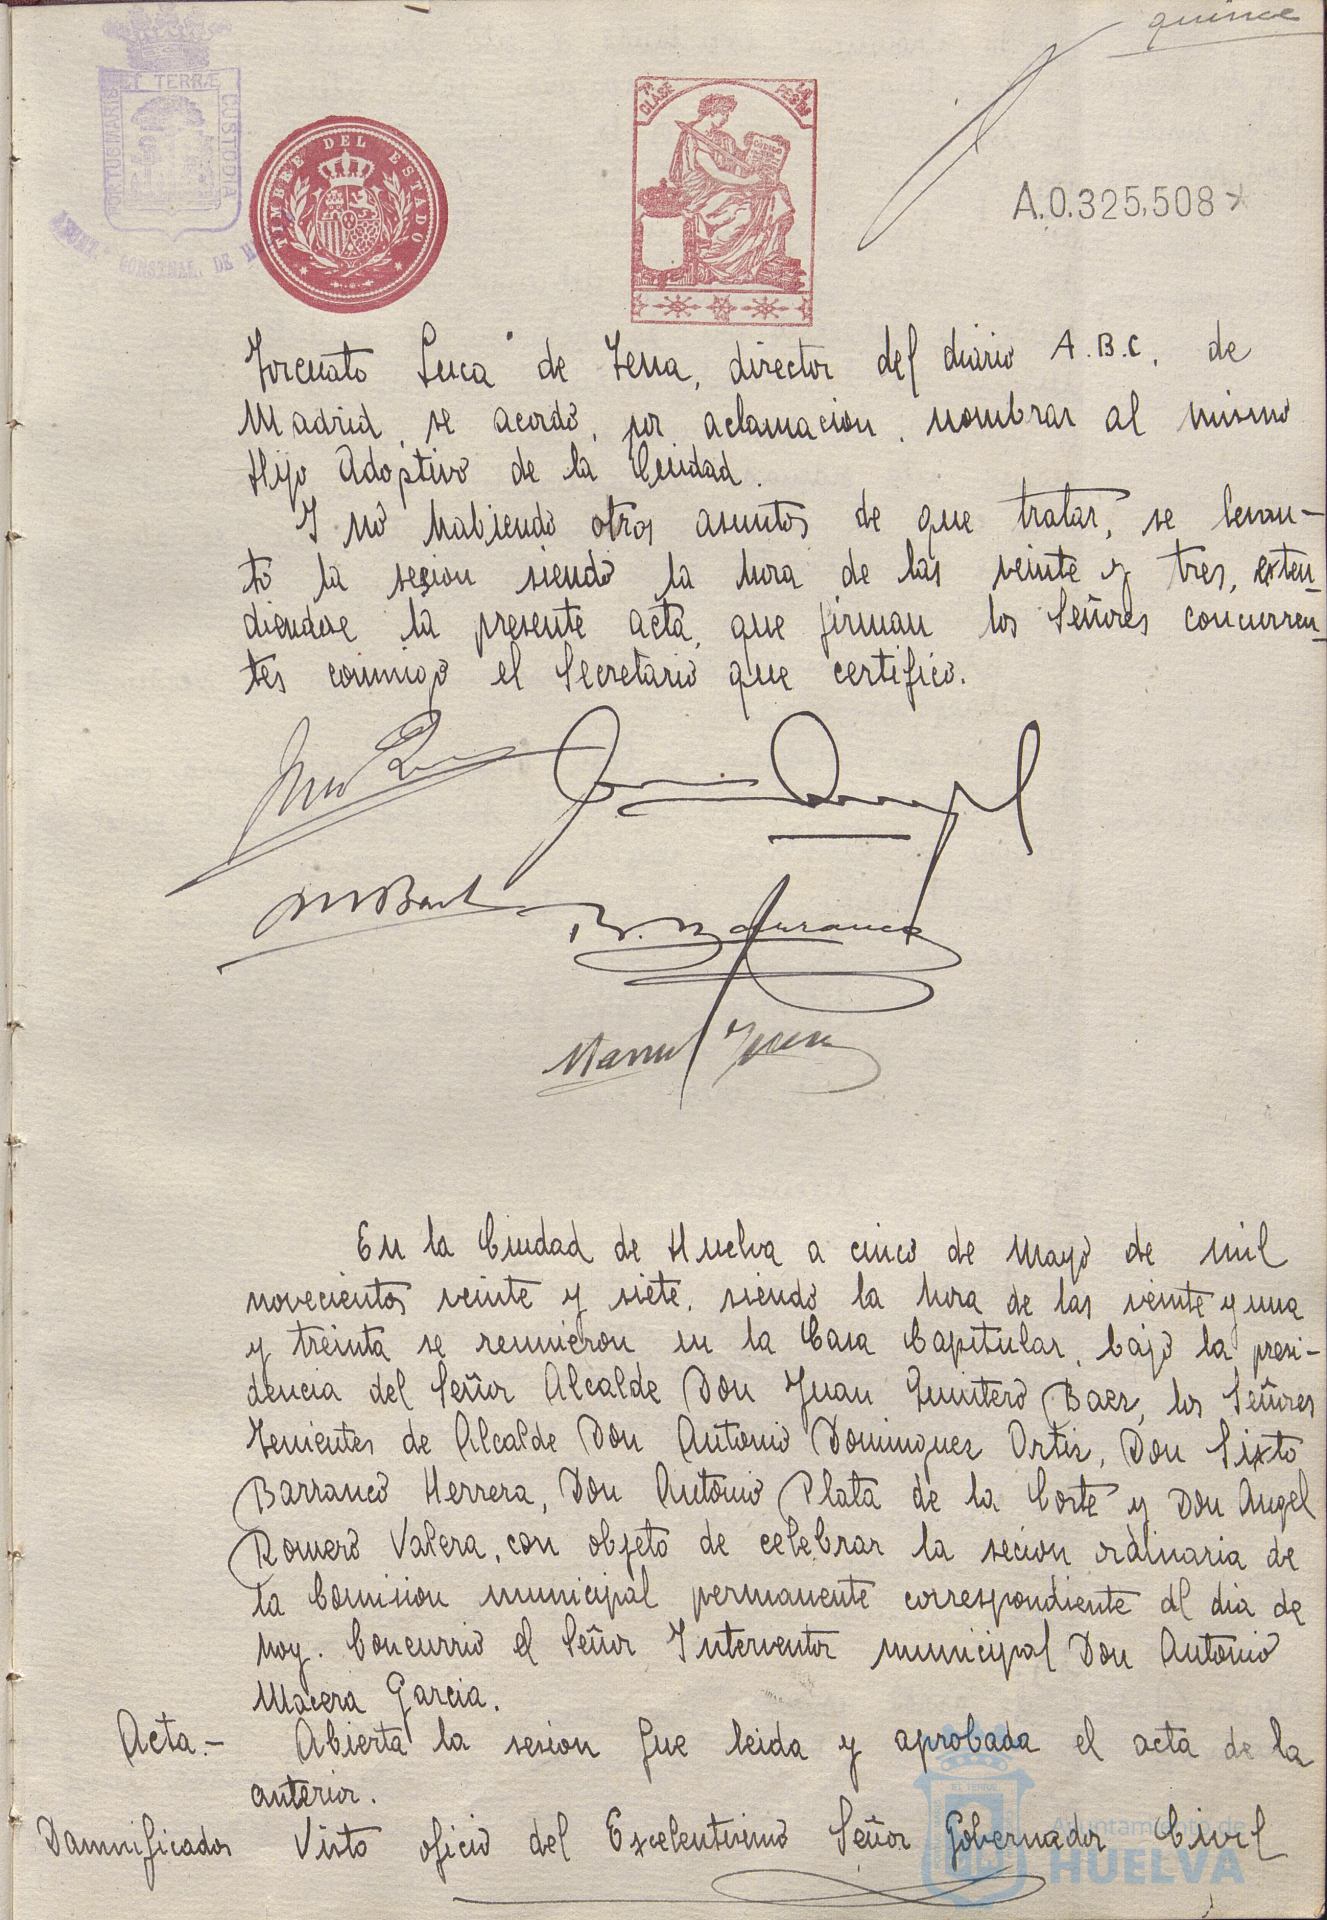 quince
PORTUS MARIS ET TERRÆ CUSTODIA
CONSTNAL. DE
TIMBRE DEL ESTADO
7ª CLASE
PESETA
CODIGO
A.0.325,508
Torcuato Luca de Tena, director del diario A.B.C. de
Madrid, se acordó, por aclamacion, nombrar al mismo
Hijo Adoptivo de la Ciudad.
Y no habiendo otros asuntos de que tratar, se levan-
tó la sesion siendo la hora de las veinte y tres, exten-
diendose la presente acta, que firman los Señores concurren-
tes conmigo el Secretario que certifico.
Manuel
En la Ciudad de Huelva a cinco de Mayo de mil
novecientos veinte y siete, siendo la hora de las veinte y una
y treinta se reunieron en la Casa Capitular, bajo la presi-
dencia del Señor Alcalde Don Juan Quintero Baez, los Señores
Tenientes de Alcalde Don Antonio Dominguez Ortiz, Don Sixto
Barranco Herrera, Don Antonio Plata de la Corte y Don Angel
Romero Valera, con objeto de celebrar la secion ordinaria de
la Comision municipal permanente correspondiente al dia de
hoy. Concurrió el Señor Interventor municipal Don Antonio
Macera Garcia.
Acta.- Abierta la sesion fue leida y aprobada el acta de la
anterior.
Damnificados Visto oficio del Excelentisimo Señor Gobernador Civil
Ayuntamiento de
HUELVA